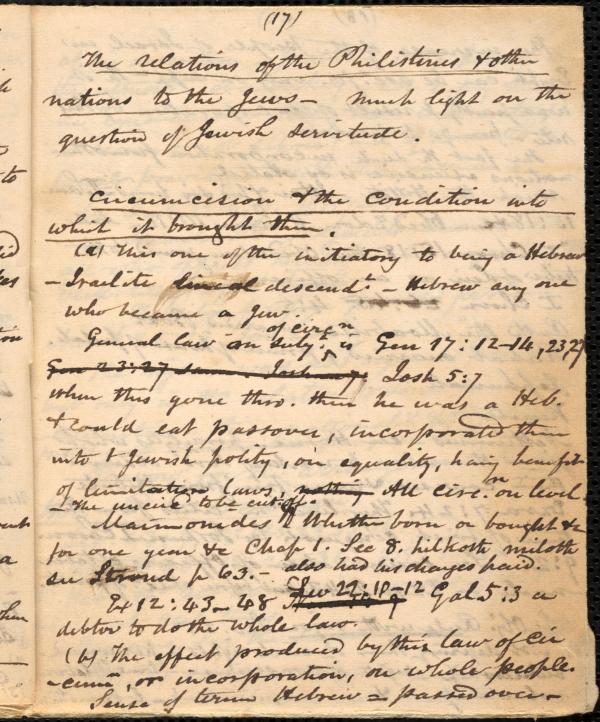 (17)
The relations of the Philistines & other
nations to the Jews – much light on the
question of Jewish servitude.
Circumcision & the condition into
which it brought them.
(a) This one of the initiatory to being a Hebrew
– Israelite lineal descendt – Hebrew any one
who became a Jew.
of circn
General law on subjt is Gen 17: 12–14, 23, 27
Gen 23:27 same. Josh 5:7
when this gone thro. then he was a Heb.
& could eat passover, incorporated then
into t Jewish polity, on equality, havg benefit
of limitation laws, nothing All circ.n on level
– The uncirc. to be cut off.
Maimonides Whether born or bought &c
for one year &c Chap 1. Sec 8. hilkoth miloth
see Stroud p 63. – also had discharges paid.
Ex 12: 43–48 Lev 22: 10–12 Gal 5:3 a
debtor to do the whole law.
(b) The effect produced by this law of cir
–cumn, or incorporation, on whole people.
Sense of term Hebrew = passed over –